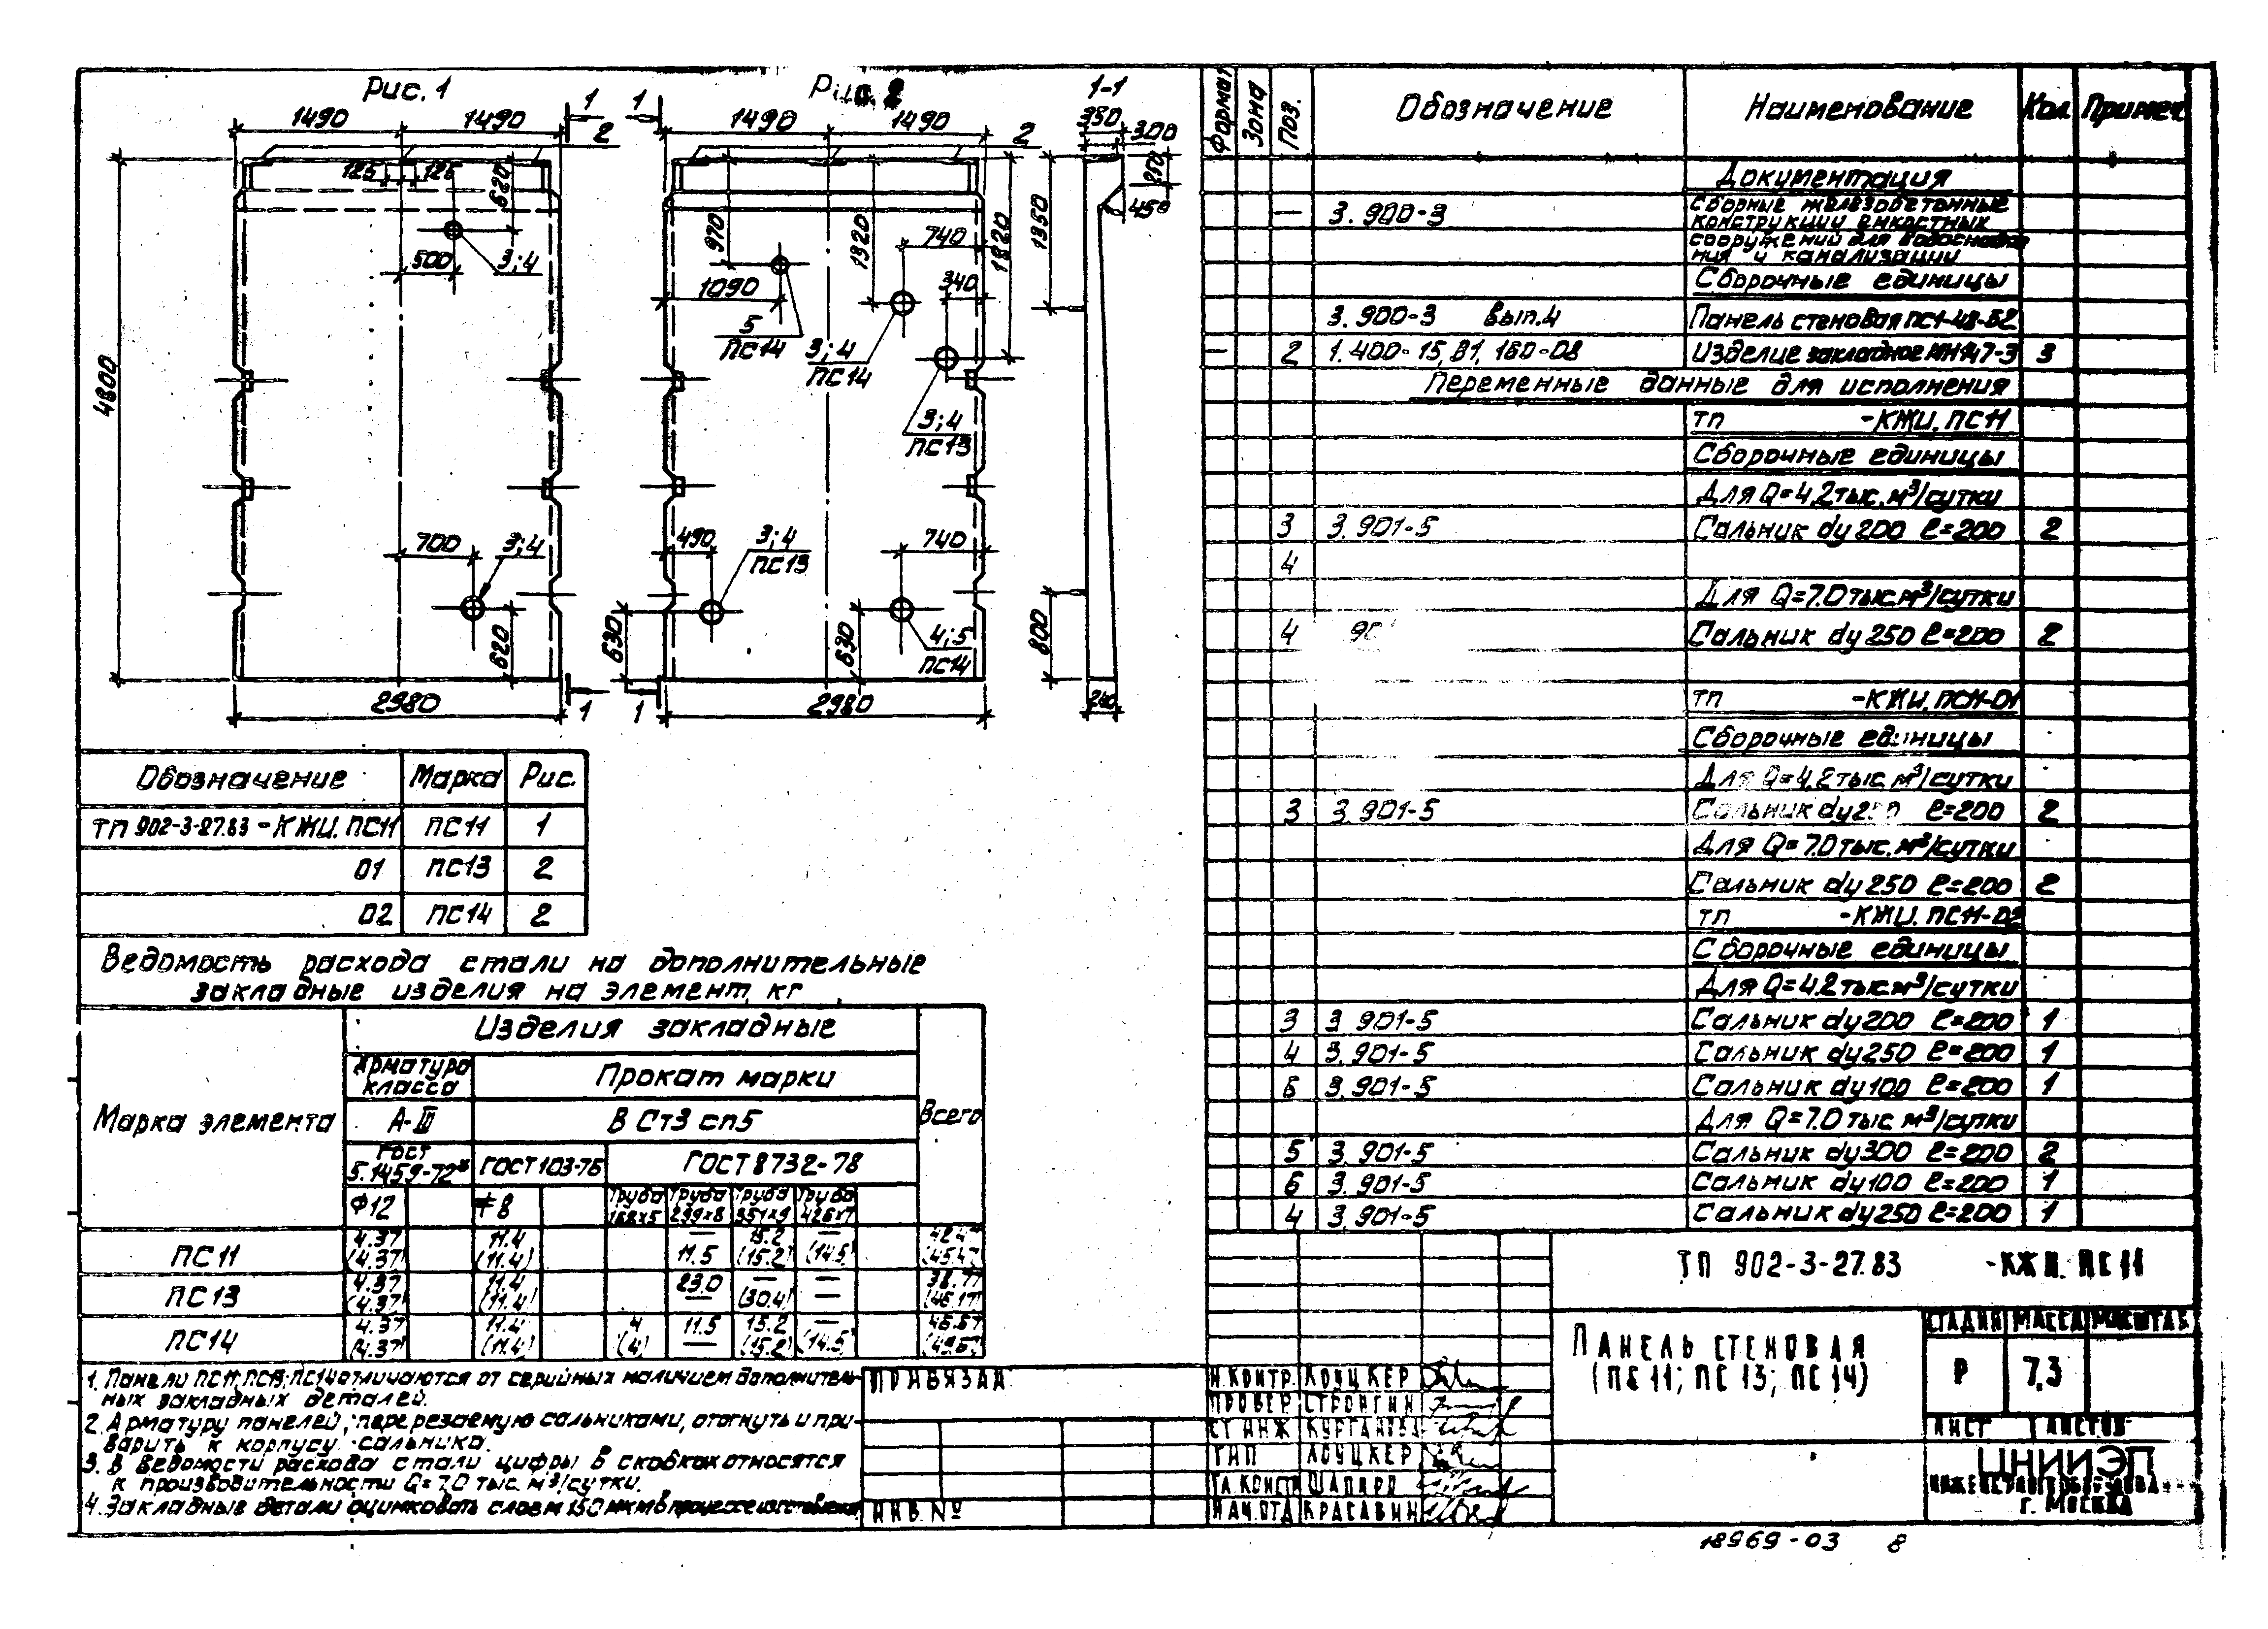 Рис. 1
1490
1490
1
2
125
125
620
500
3;4
4800
700
3;4
620
2980
1
Рис. 2
1
1490
1490
2
970
1320
1820
740
340
1090
5
ПС14
3;4
ПС14
3;4
ПС13
490
3;4
ПС13
740
630
630
4;5
ПС14
1
2980
1-1
350
300
450
1350
800
240
Обозначение Марка Рис.
ТП 902-3-27.83-КЖИ.ПС11 ПС11 1
01 ПС13 2
02 ПС14 2
Ведомость расхода стали на дополнительные
закладные изделия на элемент, кг
Марка элемента
Изделия закладные
Всего
Арматура класса
Прокат марки
А-III
В Ст3 сп5
ГОСТ 5.1459-72*
ГОСТ 103-76
ГОСТ 8732-78
Ф12
≠8
Труба 168х5
Труба 299х8
Труба 351х9
Труба 426х7
ПС11
4.37 11.4 — 15.2
(4.37) (11.4) 11.5 (15.2) (14.5) (45.47)
ПС13
4.37 11.4 23.0 — — 38.77
(4.37) (11.4) — (30.4) — (46.17)
ПС14
4.37 11.4 4 11.5 15.2 — 46.67
(4.37) (11.4) (4) — (15.2) (14.5)
1. Панели ПС11, ПС13, ПС14 отличаются от серийных наличием дополнитель-
ных закладных деталей.
2. Арматуру панелей, перерезаемую сальниками, отогнуть и при-
варить к корпусу сальника.
3. В ведомости расхода стали цифры в скобках относятся
к производительности Q=7.0 тыс. м³/сутки.
4. Закладные детали оцинковать слоем 150 мкм в процессе изготовления
Формат Зона Поз. Обозначение Наименование Кол. Примеч
Документация
— 3.900-3 Сборные железобетонные
конструкции емкостных
сооружений для водоснабже
ния и канализации
Сборочные единицы
3.900-3 вып.4 Панель стеновая ПС1-48-Б2
— 2 1.400-15, В1, 160-08 Изделие закладное МН147-3 3
Переменные данные для исполнения
ТП -КЖИ.ПС11
Сборочные единицы
Для Q=4,2 тыс. м³/сутки
3 3.901-5 Сальник dy 200 ℓ=200 2
4
Для Q=7.0 тыс м³/сутки
4 Сальник dy 250 ℓ=200 2
ТП -КЖИ.ПС11-01
Сборочные единицы
Для Q=4.2 тыс м³/сутки
3 3.901-5 Сальник ℓ=200 2
Для Q=7.0 тыс. м³/сутки
Сальник dy 250 ℓ=200 2
ТП -КЖИ.ПС11-02
Сборочные единицы
Для Q=4.2 тыс. м³/сутки
3 3.901-5 Сальник dy200 ℓ=200 1
4 3.901-5 Сальник dy250 ℓ=200 1
6 3.901-5 Сальник dy100 ℓ=200 1
Для Q=7.0 тыс м³/сутки
5 3.901-5 Сальник dy300 ℓ=200 2
6 3.901-5 Сальник dy100 ℓ=200 1
4 3.901-5 Сальник dy250 ℓ=200 1
ТП 902-3-27.83 -КЖИ.ПС11
Панель стеновая
(ПС11; ПС13; ПС14)
СТАДИЯ МАССА МАСШТАБ
Р 7,3
ЛИСТ ЛИСТОВ
ЦНИИЭП
ИНЖЕНЕРНОГО ОБОРУДОВА
г. Москва
ПРИВЯЗАН
ИНВ. №
Н.КОНТР. ЛОУЦКЕР
ПРОВЕР СТРОНГИН
СТ ИНЖ КУРГАНОВА
ГИП ЛОУЦКЕР
ГЛ.КОНСТР ШАПИРО
НАЧ.ОТД КРАСАВИН
18969-03 8